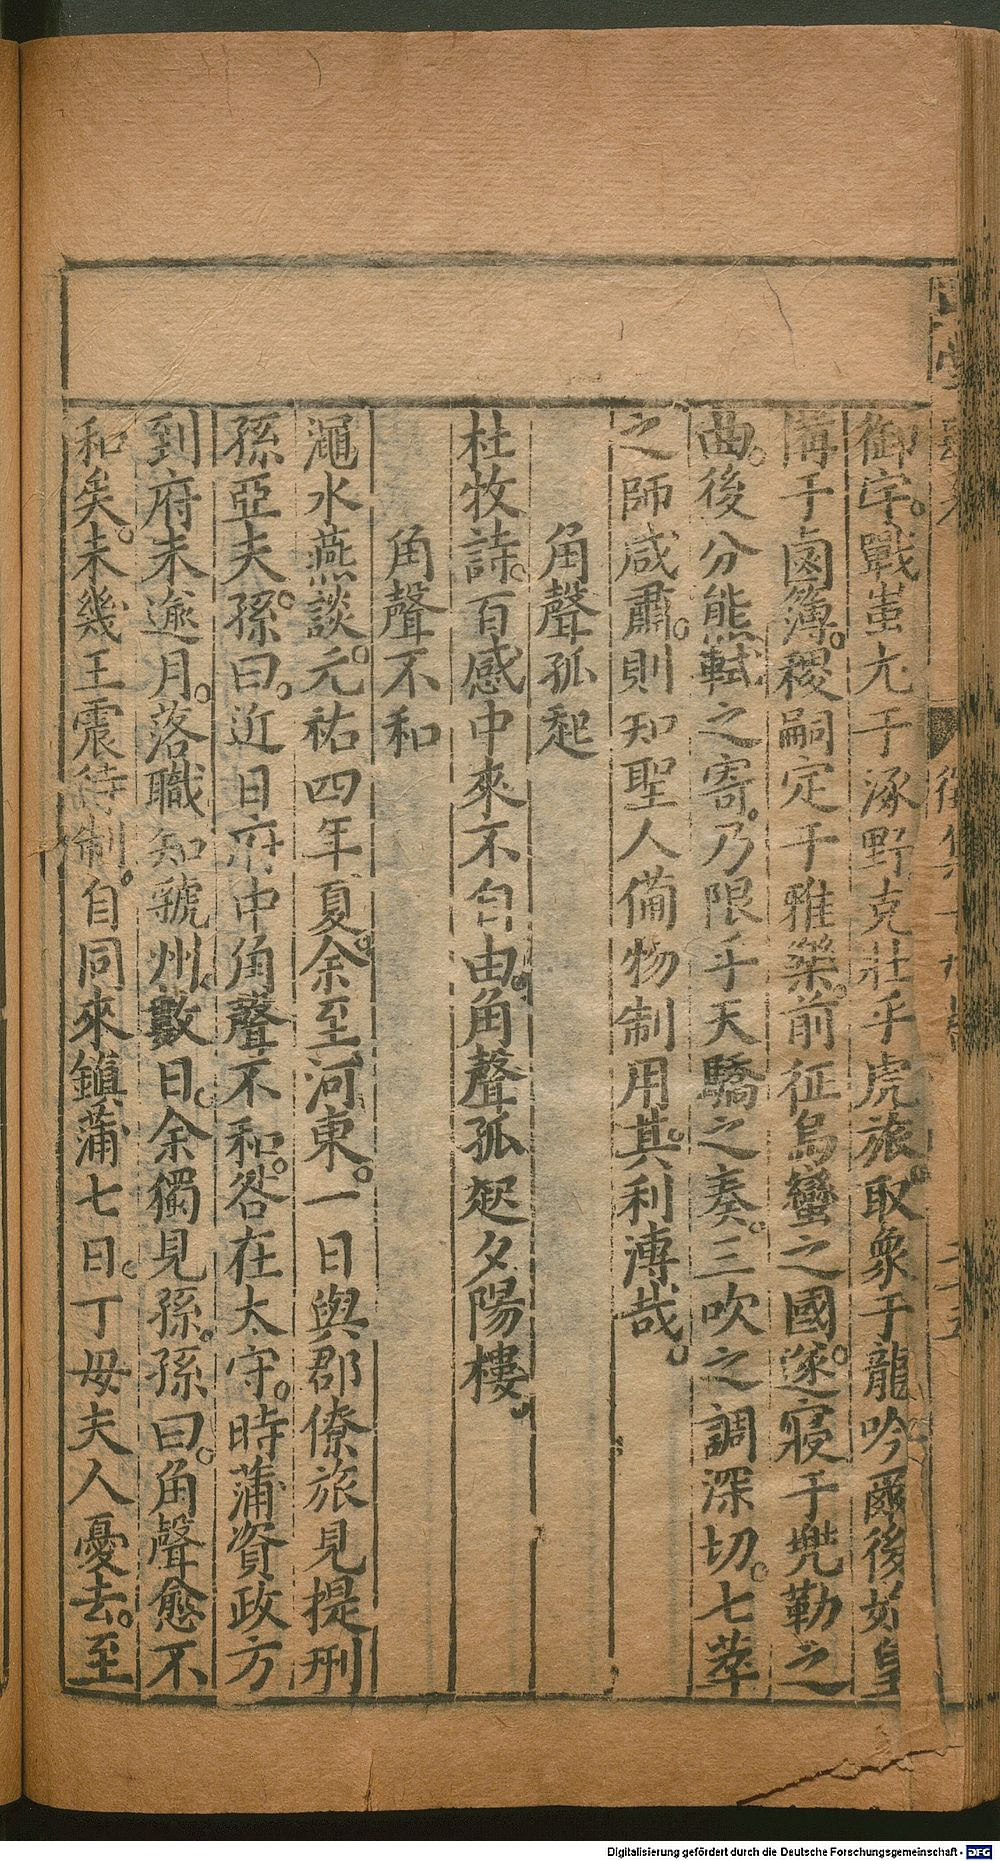 御宇。戰蚩尤于涿野克壯乎虎旅。取象于龍吟爾後始皇
備于鹵簿。稷嗣定于雅樂。前征烏蠻之國。遂寢于兠勒之
曲。後分熊軾之寄。乃限乎天驕之奏。三吹之調深切。七萃
之師咸肅。則知聖人備物制用。其利溥哉。
角聲孤起
杜牧詩。百感中來不自由。角聲孤起夕陽樓。
角聲不和
澠水燕談。元祐四年夏。余至河東。一日與郡僚旅見提刑
孫亞夫。孫曰。近日府中角聲不和。咎在太守。時蒲資政方
到府未逾月。落職知虢州。數日。余獨見孫。孫曰。角聲愈不
和矣。未幾王震待制。自同來鎮蒲七日。丁母夫人憂去。至
Digitalisierung gefördert durch die Deutsche Forschungsgemeinschaft - DFG